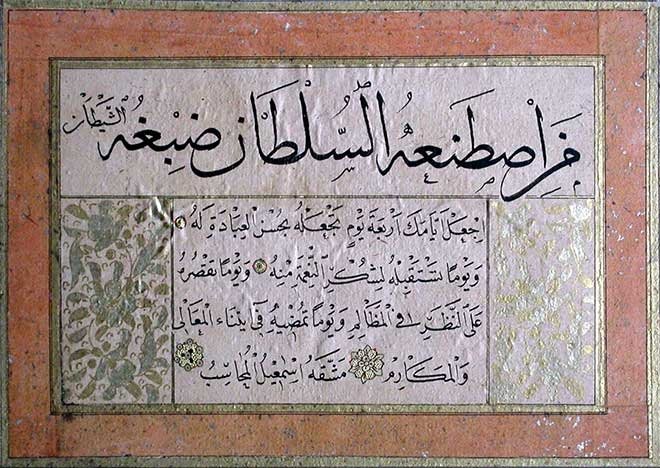 من اصطنعه السلطان صبغه الشيطان
اجعل ايامك اربعة يوم تجعله بحسن العبادة له
ويوما تستقبله لشكر النعمة منه ويوما تقصره
على النظر في المظالم ويوما تمضيه في ابتناء المعالى
والمكارم مشقه اسمعيل المحاسب